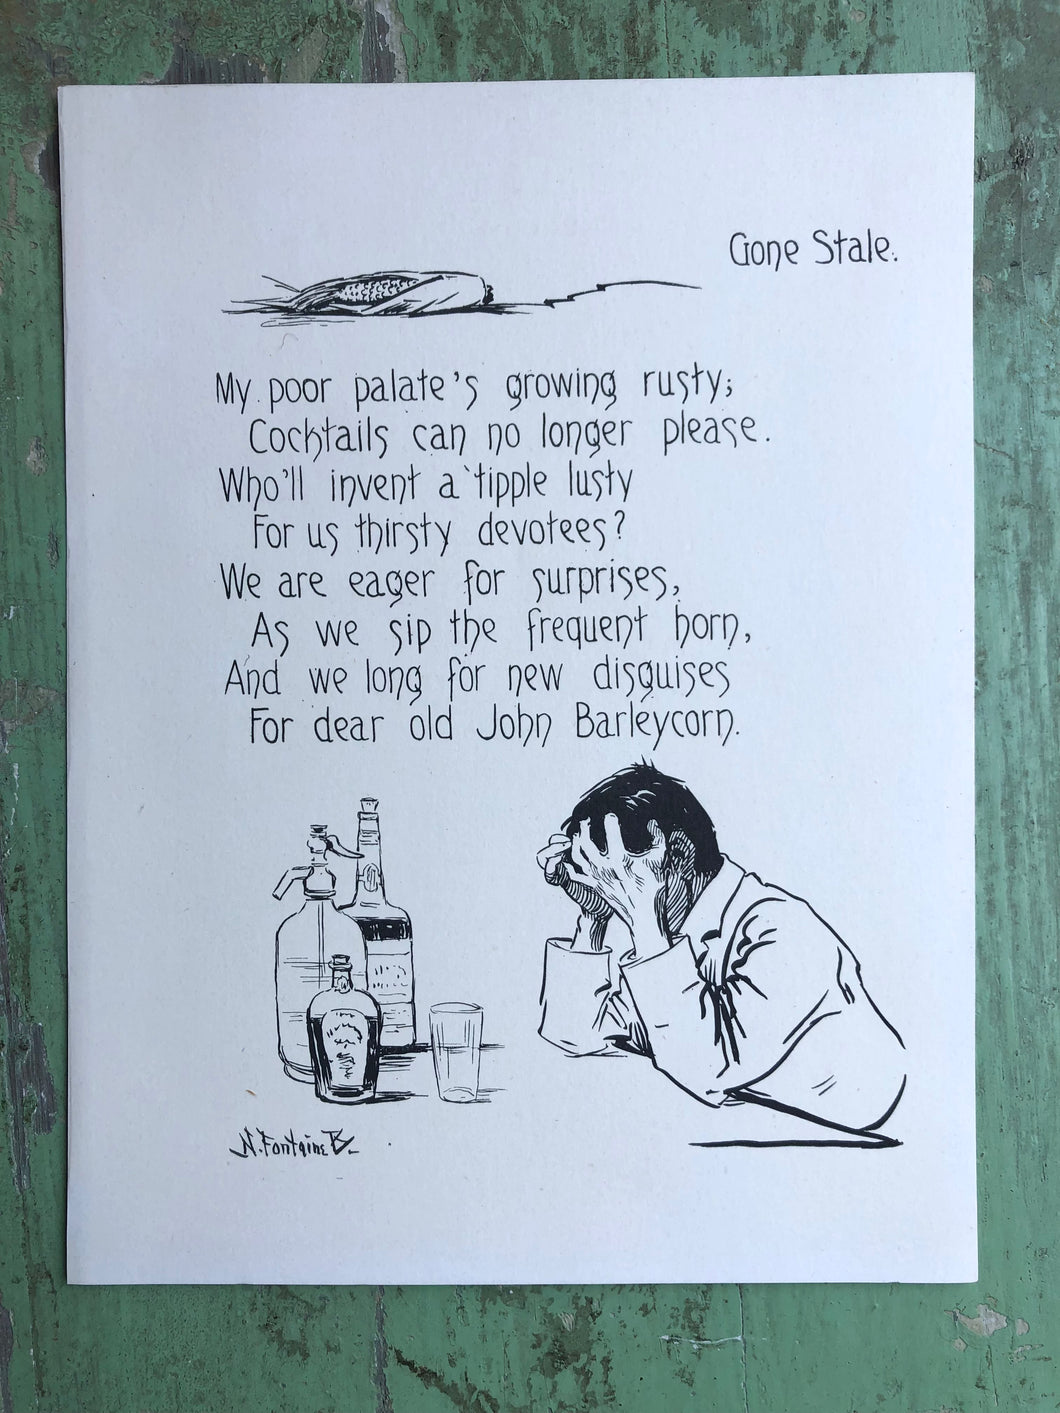 Gone Stale.
My poor palate's growing rusty;
Cocktails can no longer please.
Who'll invent a tipple lusty
For us thirsty devotees?
We are eager for surprises,
As we sip the frequent horn,
And we long for new disguises
For dear old John Barleycorn.
N. Fontaine